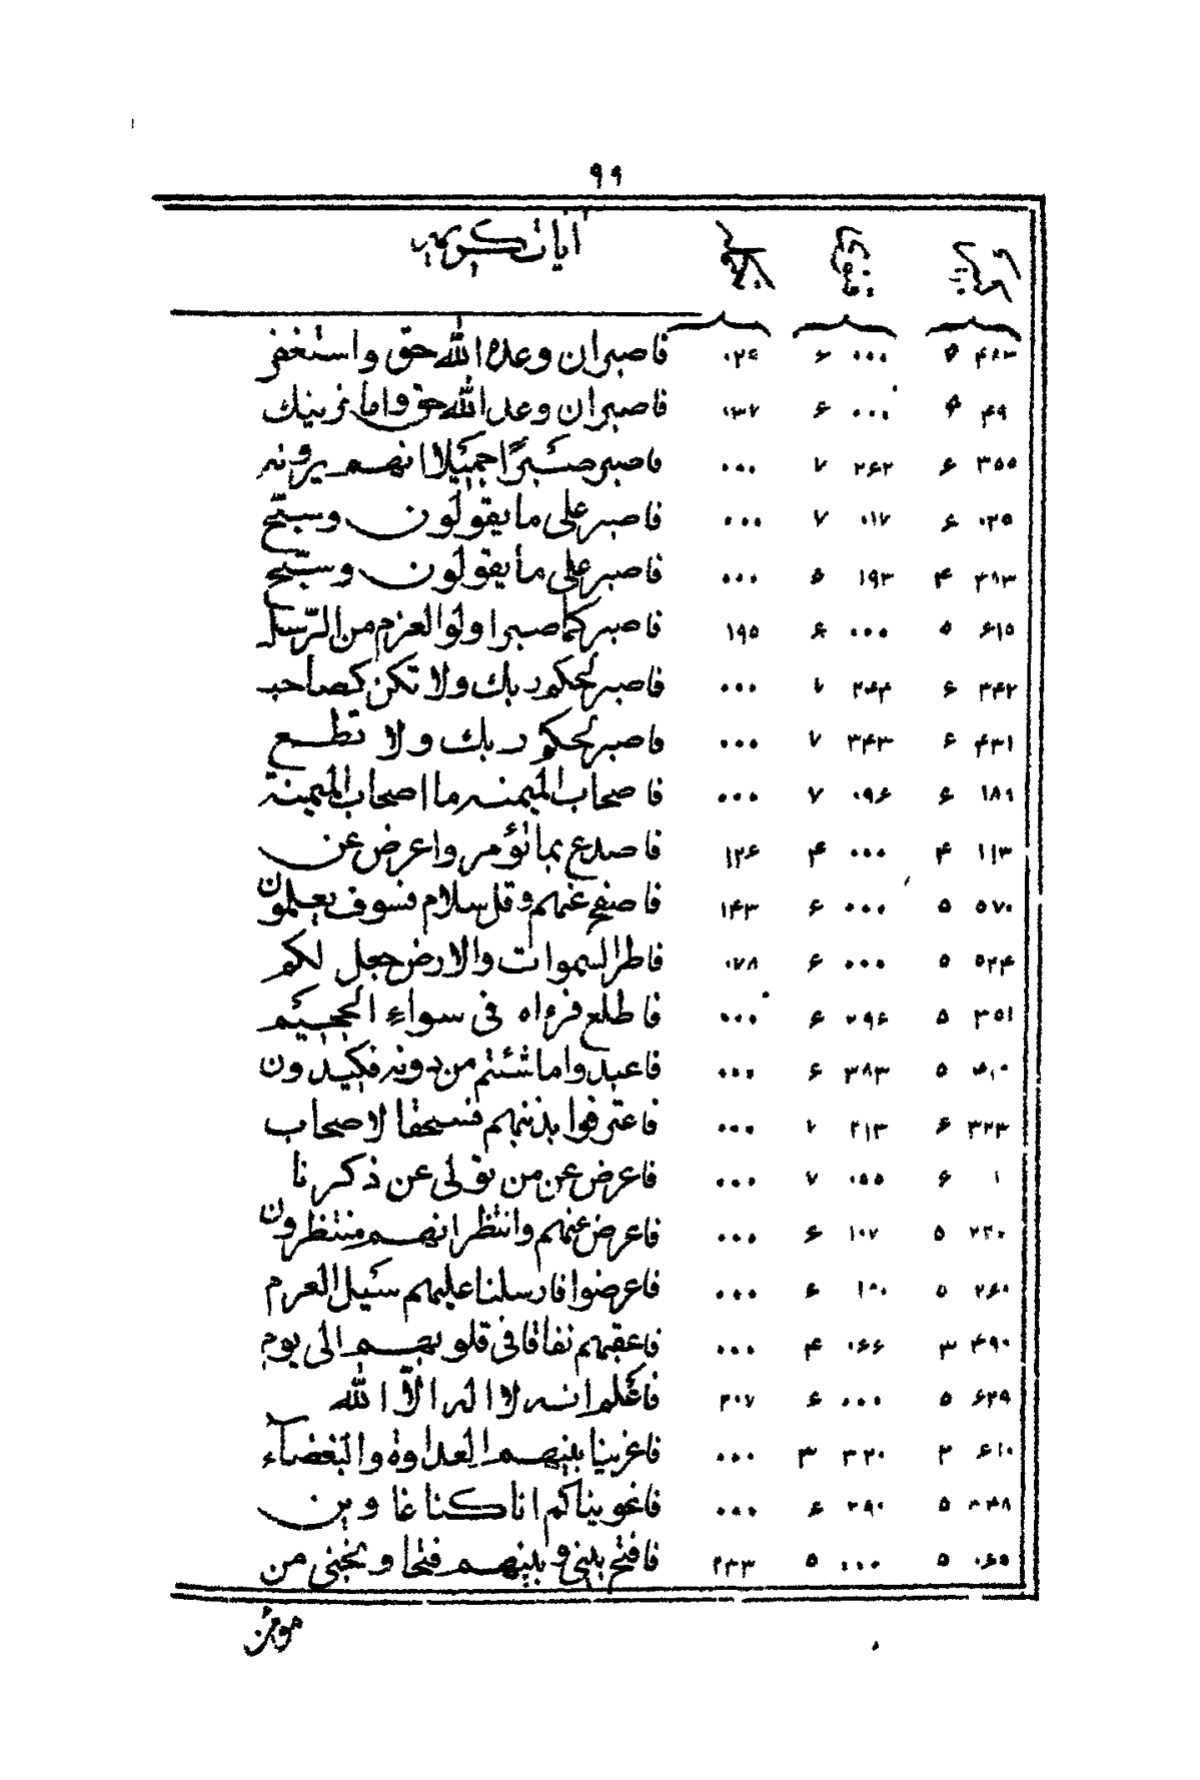 ٩٩
آيات كريمه
۴۶۳ ۵ ۰۰۰ ۶ ۰۲۶ فاصبر ان وعد الله حق واستغفر
۰۴۹ ۶ ۰۰۰ ۰۳۷ فاصبر ان وعد الله حق واما نرينك
۳۵۵ ۶ ۲۶۲ ۷ ۰۰۰ فاصبر صبرًا جميلا انهم يرونه
۰۲۵ ۶ ۰۱۷ ۷ ۰۰۰ فاصبر على ما يقولون وسبّح
۳۱۳ ۴ ۱۹۳ ۵ ۰۰۰ فاصبر على ما يقولون وسبّح
۶۱۵ ۵ ۰۰۰ ۶ ۱۹۵ فاصبر كما صبر اولو العزم من الرّسل
۳۴۲ ۶ ۲۴۴ ۷ ۰۰۰ فاصبر لحكم ربك ولا تكن كصاحب
۴۳۱ ۶ ۳۴۳ ۷ ۰۰۰ فاصبر لحكم ربك ولا تطع
۱۸۹ ۶ ۰۹۶ ۷ ۰۰۰ فاصحاب الميمنه ما اصحاب الميمنة
۱۱۳ ۴ ۰۰۰ ۴ ۱۲۶ فاصدع بما تؤمر واعرض عن
۵۷۰ ۵ ۰۰۰ ۶ ۱۴۳ فاصفح عنهم وقل سلام فسوف يعلمون
۵۲۴ ۵ ۰۰۰ ۶ ۰۷۸ فاطر السموات والارض جعل لكم
۳۵۱ ۵ ۲۹۶ ۶ ۰۰۰ فاطلع فرءاه فى سواء الجحيم
۵ ۳۸۳ ۶ ۰۰۰ فاعبدوا ما شئتم من دونه فكيدون
۳۲۳ ۶ ۲۱۳ ۷ ۰۰۰ فاعترفوا بذنبهم فسحقا لاصحاب
۱ ۶ ۰۵۵ ۷ ۰۰۰ فاعرض عن من تولى عن ذكرنا
۲۳۰ ۵ ۱۰۷ ۶ ۰۰۰ فاعرض عنهم وانتظر انهم منتظرون
۲۶۰ ۵ ۶ ۰۰۰ فاعرضوا فارسلنا عليهم سيل العرم
۴۹۰ ۳ ۰۶۶ ۴ ۰۰۰ فاعقبهم نفاقا فى قلوبهم الى يوم
۶۲۹ ۵ ۰۰۰ ۶ ۲۰۷ فاعلم انه لا اله الّا الله
۶۱۰ ۲ ۳۲۰ ۳ ۰۰۰ فاغرينا بينهم العداوة والبغضآء
۳۴۸ ۵ ۲۹۰ ۶ ۰۰۰ فاغويناكم انا كنا غاوين
۰۶۵ ۵ ۰۰۰ ۵ ۲۳۳ فافتح بينى وبينهم فتحا ونجنى من
مومن